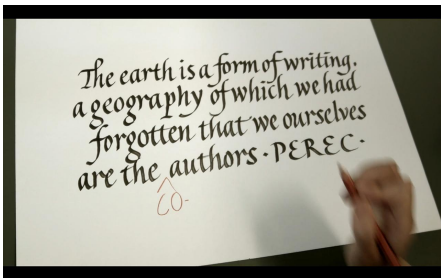 The earth is a form of writing.
a geography of which we had
forgotten that we ourselves
are the authors · PEREC ·
CO-